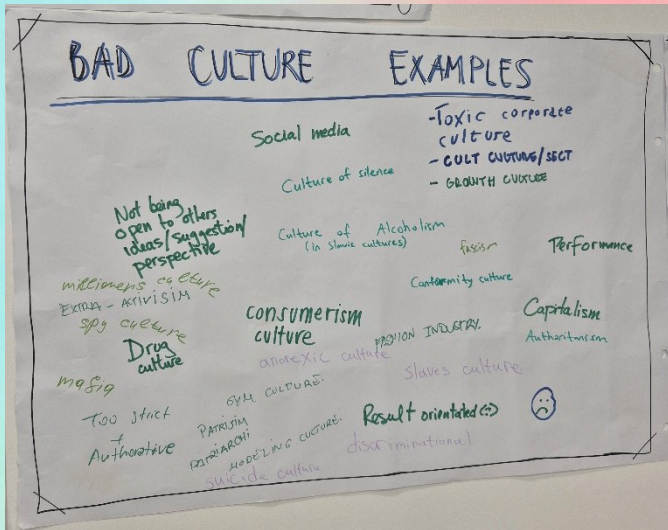 BAD CULTURE EXAMPLES
Social media
-Toxic corporate
culture
- CULT CULTURE/SECT
- GROWTH CULTURE
Culture of silence
Not being
open to others
ideas/suggestion/
perspective
Culture of Alcoholism
(in slavic cultures)
fascism
Performance
millimeners culture
EXTRA-ACTIVISIM
spy culture
Conformity culture
Consumerism
culture
Capitalism
Authoritarism
FASHION INDUSTRY.
Drug
culture
anorexic culture
slaves culture
mafia
GYM CULTURE.
Too strict
+
Authorative
PATRISIM
PATRIARCHI
MODELING CULTURE.
Result orientated (:)
discriminational
suicide culture